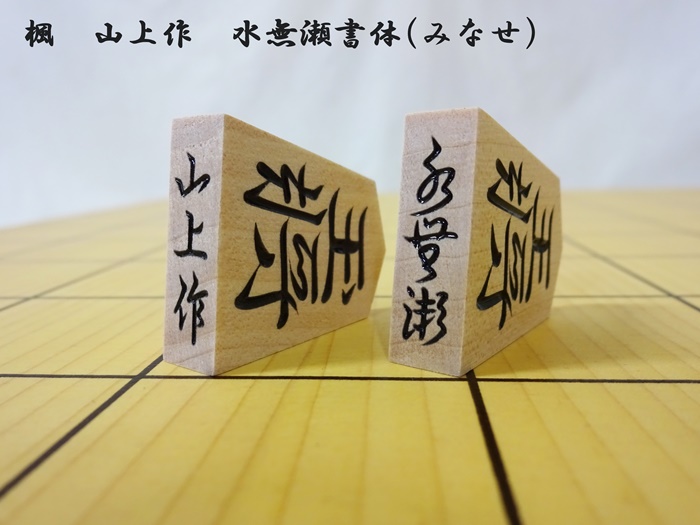 楓　山上作　水無瀬書体(みなせ)
山上作
玉將
水無瀬
王將